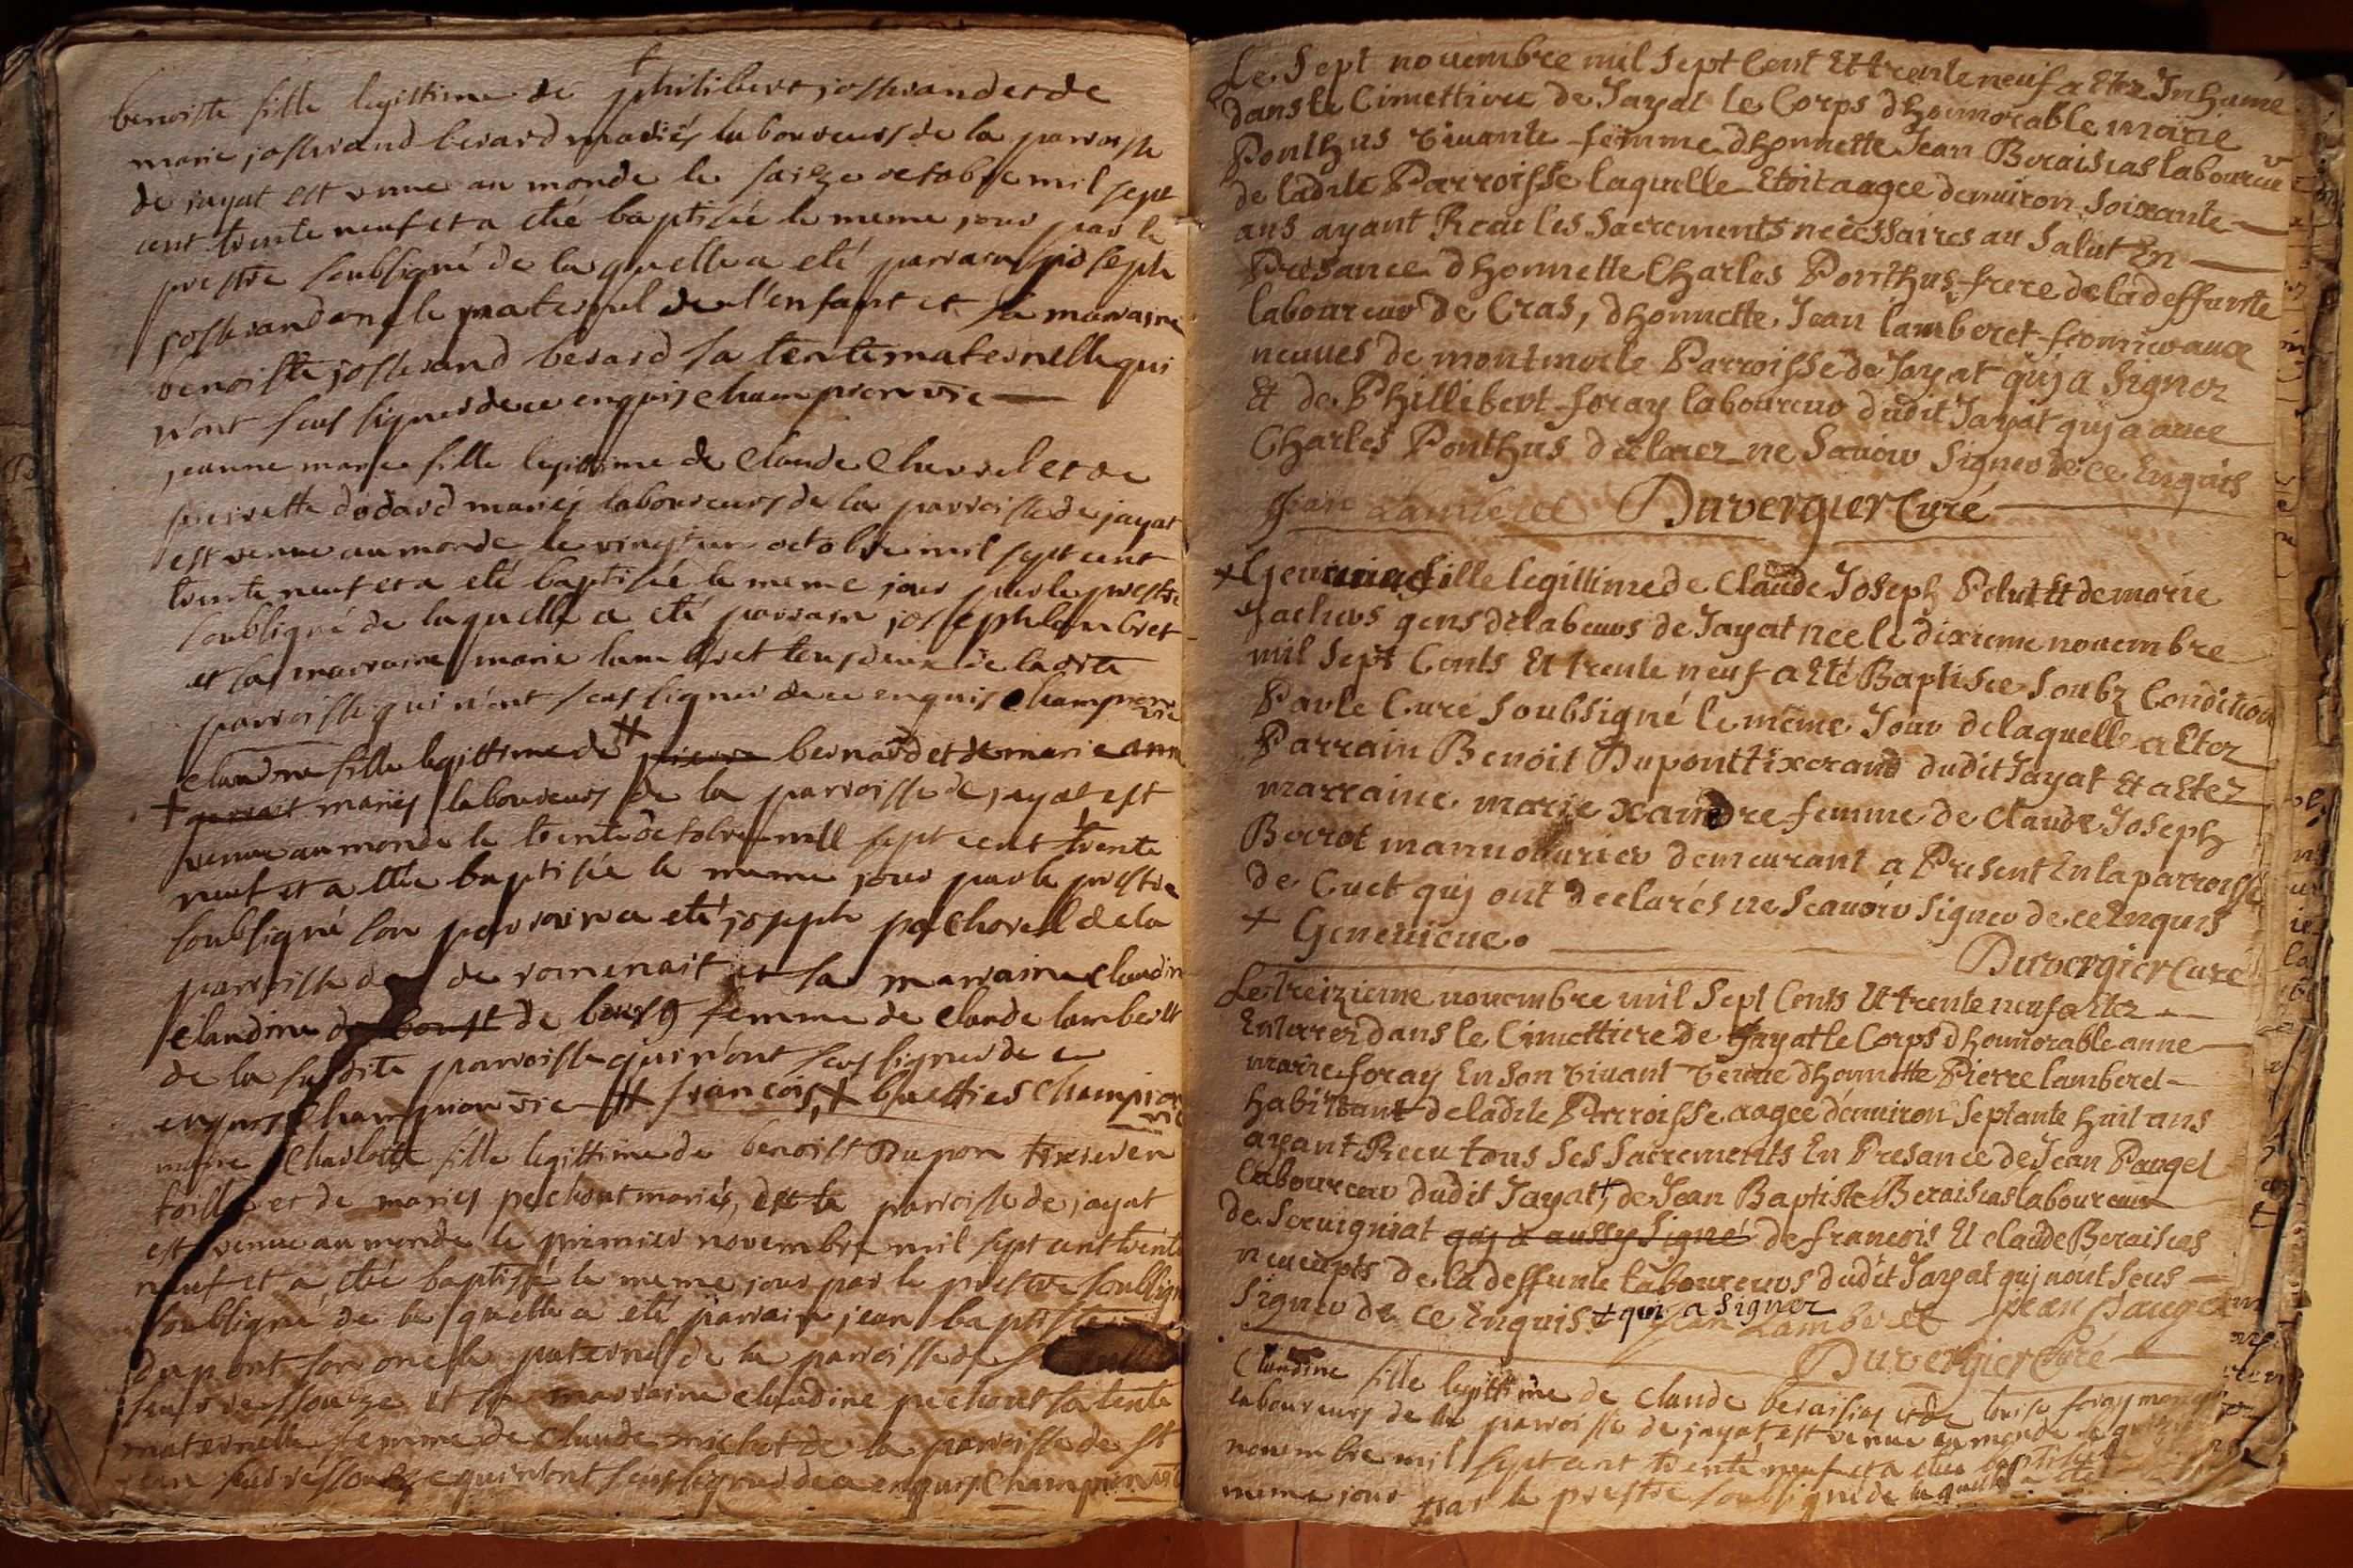 benoiste fille legittime de philibert josserand et de
marie josserand berard mariés laboureurs de la parroisse
de jayat est venue au monde le saize octobre mil sept
cent trente neuf et a etée baptisée le meme jour par le
prestre soubsigné de laquelle a eté parrain joseph
josserand oncle maternel de l'enfant et sa marraine
benoiste josserand berard sa tente maternelle qui
n'ont sceus signer de ce enquis championvie
jeanne marie fille legittime de Claude Chevrel et de
pierrette dodard mariés laboureurs de la parroisse de jayat
est venue au monde le vingt un octobre mil sept cent
trente neuf et a eté baptisée le meme jour par le prestre
soubsigné de laquelle a eté parrain joseph lambret
et sa marraine marie lambret tous deux de ladite
parroisse qui n'ont sceus signer de ce enquis championvie
claudine fille legittime de # pierre bernard et de marie anne
+ mariés laboureurs de la parroisse de jayat est
venue au monde le trente octobre mill sept cent trente
neuf et a etée baptisée le meme jour par le prestre
soubsigné son parrain a eté joseph pochorel de la
parroisse de de romenait et sa marraine claudine
claudine de bourg femme de claude lamberet
de la susdite parroisse qui n'ont sceus signer de ce
enquis championvie # françois, + buettier championvie
marie Charlotte fille legittime de benoist Dupon tixier en
toille et de marie pechout mariés, de la parroisse de jayat
est venue au monde le premier novembre mil sept cent trente
neuf et a etée baptisée le meme jour par le prestre soubsigné
soubsigné de laquelle a eté parrain jean baptiste
dupont son oncle paternel de la parroisse de
sur ressouze et sa marraine claudine pechout sa tente
maternelle femme de claude michot de la parroisse de st
jean sur ressouze qui n'ont sceus signer de ce enquis Championvie
Le Sept novembre mil Sept Cent Et trente neuf a Etez Inhumé
dans le Cimettiere de Jayat le Corps dhonnorable marie
Ponthus vivante femme dhonnette Jean Beraisias laboureur
de ladite Parroisse laquelle Etoit aagee denuiron Soixante
ans ayant Receu les Sacrements necessaires au Salut En
Presance dhonnette Charles Ponthus frere de la deffunte
laboureur de Cras, dhonnette Jean lamberet fermier aux
neuues de montmorle Parroisse de Jayat quj a Signez
Et de Phillibert foray laboureur dudit Jayat quj a auec
Charles Ponthus declarez ne Sauoir Signer de ce Enquis
Jean Lamberet Duvergier Curé
+ fille legittime de Claude Joseph Pelut Et de marie
gens de labeurs de Jayat nee le dixieme nouembre
mil Sept Cents Et trente neuf a Eté Baptisée Soubz Condition
Par le Curé Soubsigné le même Jour de laquelle a Etez
Parrain Benoit Dupont tixerand dudit Jayat Et a Etez
marraine marie xandre femme de Claude Joseph
Berrot mannouurier demeurant a Present En la parroisse
de Cuet quj ont declarés ne Scauoir Signer de ce Enquis
+ Geneuieue.
Duvergier Curé
Le treizieme nouembre mil Sept Cents Et trente neuf a Etez
Enterrez dans le Cimettiere de Jayat le Corps dhonnorable anne
marie foray En Son viuant veuue dhonnette Pierre lamberet
habittant de ladite Parroisse aagee denuiron Septante huit ans
ayant Receu tous Ses Sacrements En Presance de Jean Paugel
laboureur dudit Jayat + de Jean Baptiste Beraisias laboureur
de Seruigniat quj a aussy Signé de francois Et claude Beraisias
neueupts de la deffunte laboureurs dudit Jayat quj nont Seus
Signer de Ce Enquis. + quj a Signez Jean Lamberet Jean Pauget
Duvergier Curé
Claudine fille legittime de claude beraisias et de louise foray
laboureurs de la parroisse de jayat est venue au monde le
nouembre mil sept cent trente neuf et a etée baptisée le
meme jour par le prestre soubsigné de laquelle a eté